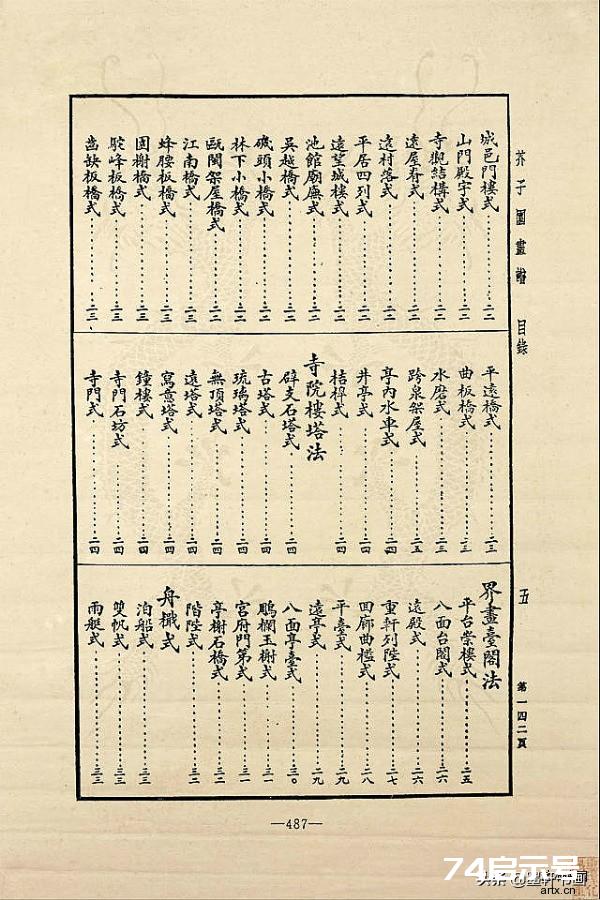 芥子園畫譜 目錄 五 第一四二頁
城邑門樓式⋯⋯二二
山門殿宇式⋯⋯二二
寺觀結構式⋯⋯二二
遠屋脊式⋯⋯二二
遠村落式⋯⋯二二
平居四列式⋯⋯二二
遠望城樓式⋯⋯二二
池館廟廡式⋯⋯二二
吳越橋式⋯⋯二二
磯頭小橋式⋯⋯二二
林下小橋式⋯⋯二二
甌閩架屋橋式⋯⋯二二
江南橋式⋯⋯二三
蜂腰板橋式⋯⋯二三
圍榭橋式⋯⋯二三
駝峰板橋式⋯⋯二三
齒缺板橋式⋯⋯二三
平遠橋式⋯⋯二三
曲板橋式⋯⋯二三
水磨式⋯⋯二三
跨泉架屋式⋯⋯二五
亭內水車式⋯⋯二四
井亭式⋯⋯二四
桔橰式⋯⋯二四
寺院樓塔法
辟支石塔式⋯⋯二四
古塔式⋯⋯二四
琉璃塔式⋯⋯二四
無頂塔式⋯⋯二四
遠塔式⋯⋯二四
寫意塔式⋯⋯二四
鐘樓式⋯⋯二四
寺門石坊式⋯⋯二四
寺門式⋯⋯二四
界畫臺閣法
平台崇樓式⋯⋯二五
八面台閣式⋯⋯二六
遠殿式⋯⋯二六
重軒列陛式⋯⋯二七
回廊曲檻式⋯⋯二八
平臺式⋯⋯二九
遠亭式⋯⋯二九
八面亭臺式⋯⋯三〇
鵰欄玉榭式⋯⋯三一
宮府門第式⋯⋯三一
亭榭石橋式⋯⋯三二
階陛式⋯⋯三二
舟檝式
泊船式⋯⋯三三
雙帆式⋯⋯三三
兩艇式⋯⋯三三
—487—
74启示号
头条 @墨轩书画
artx.cn